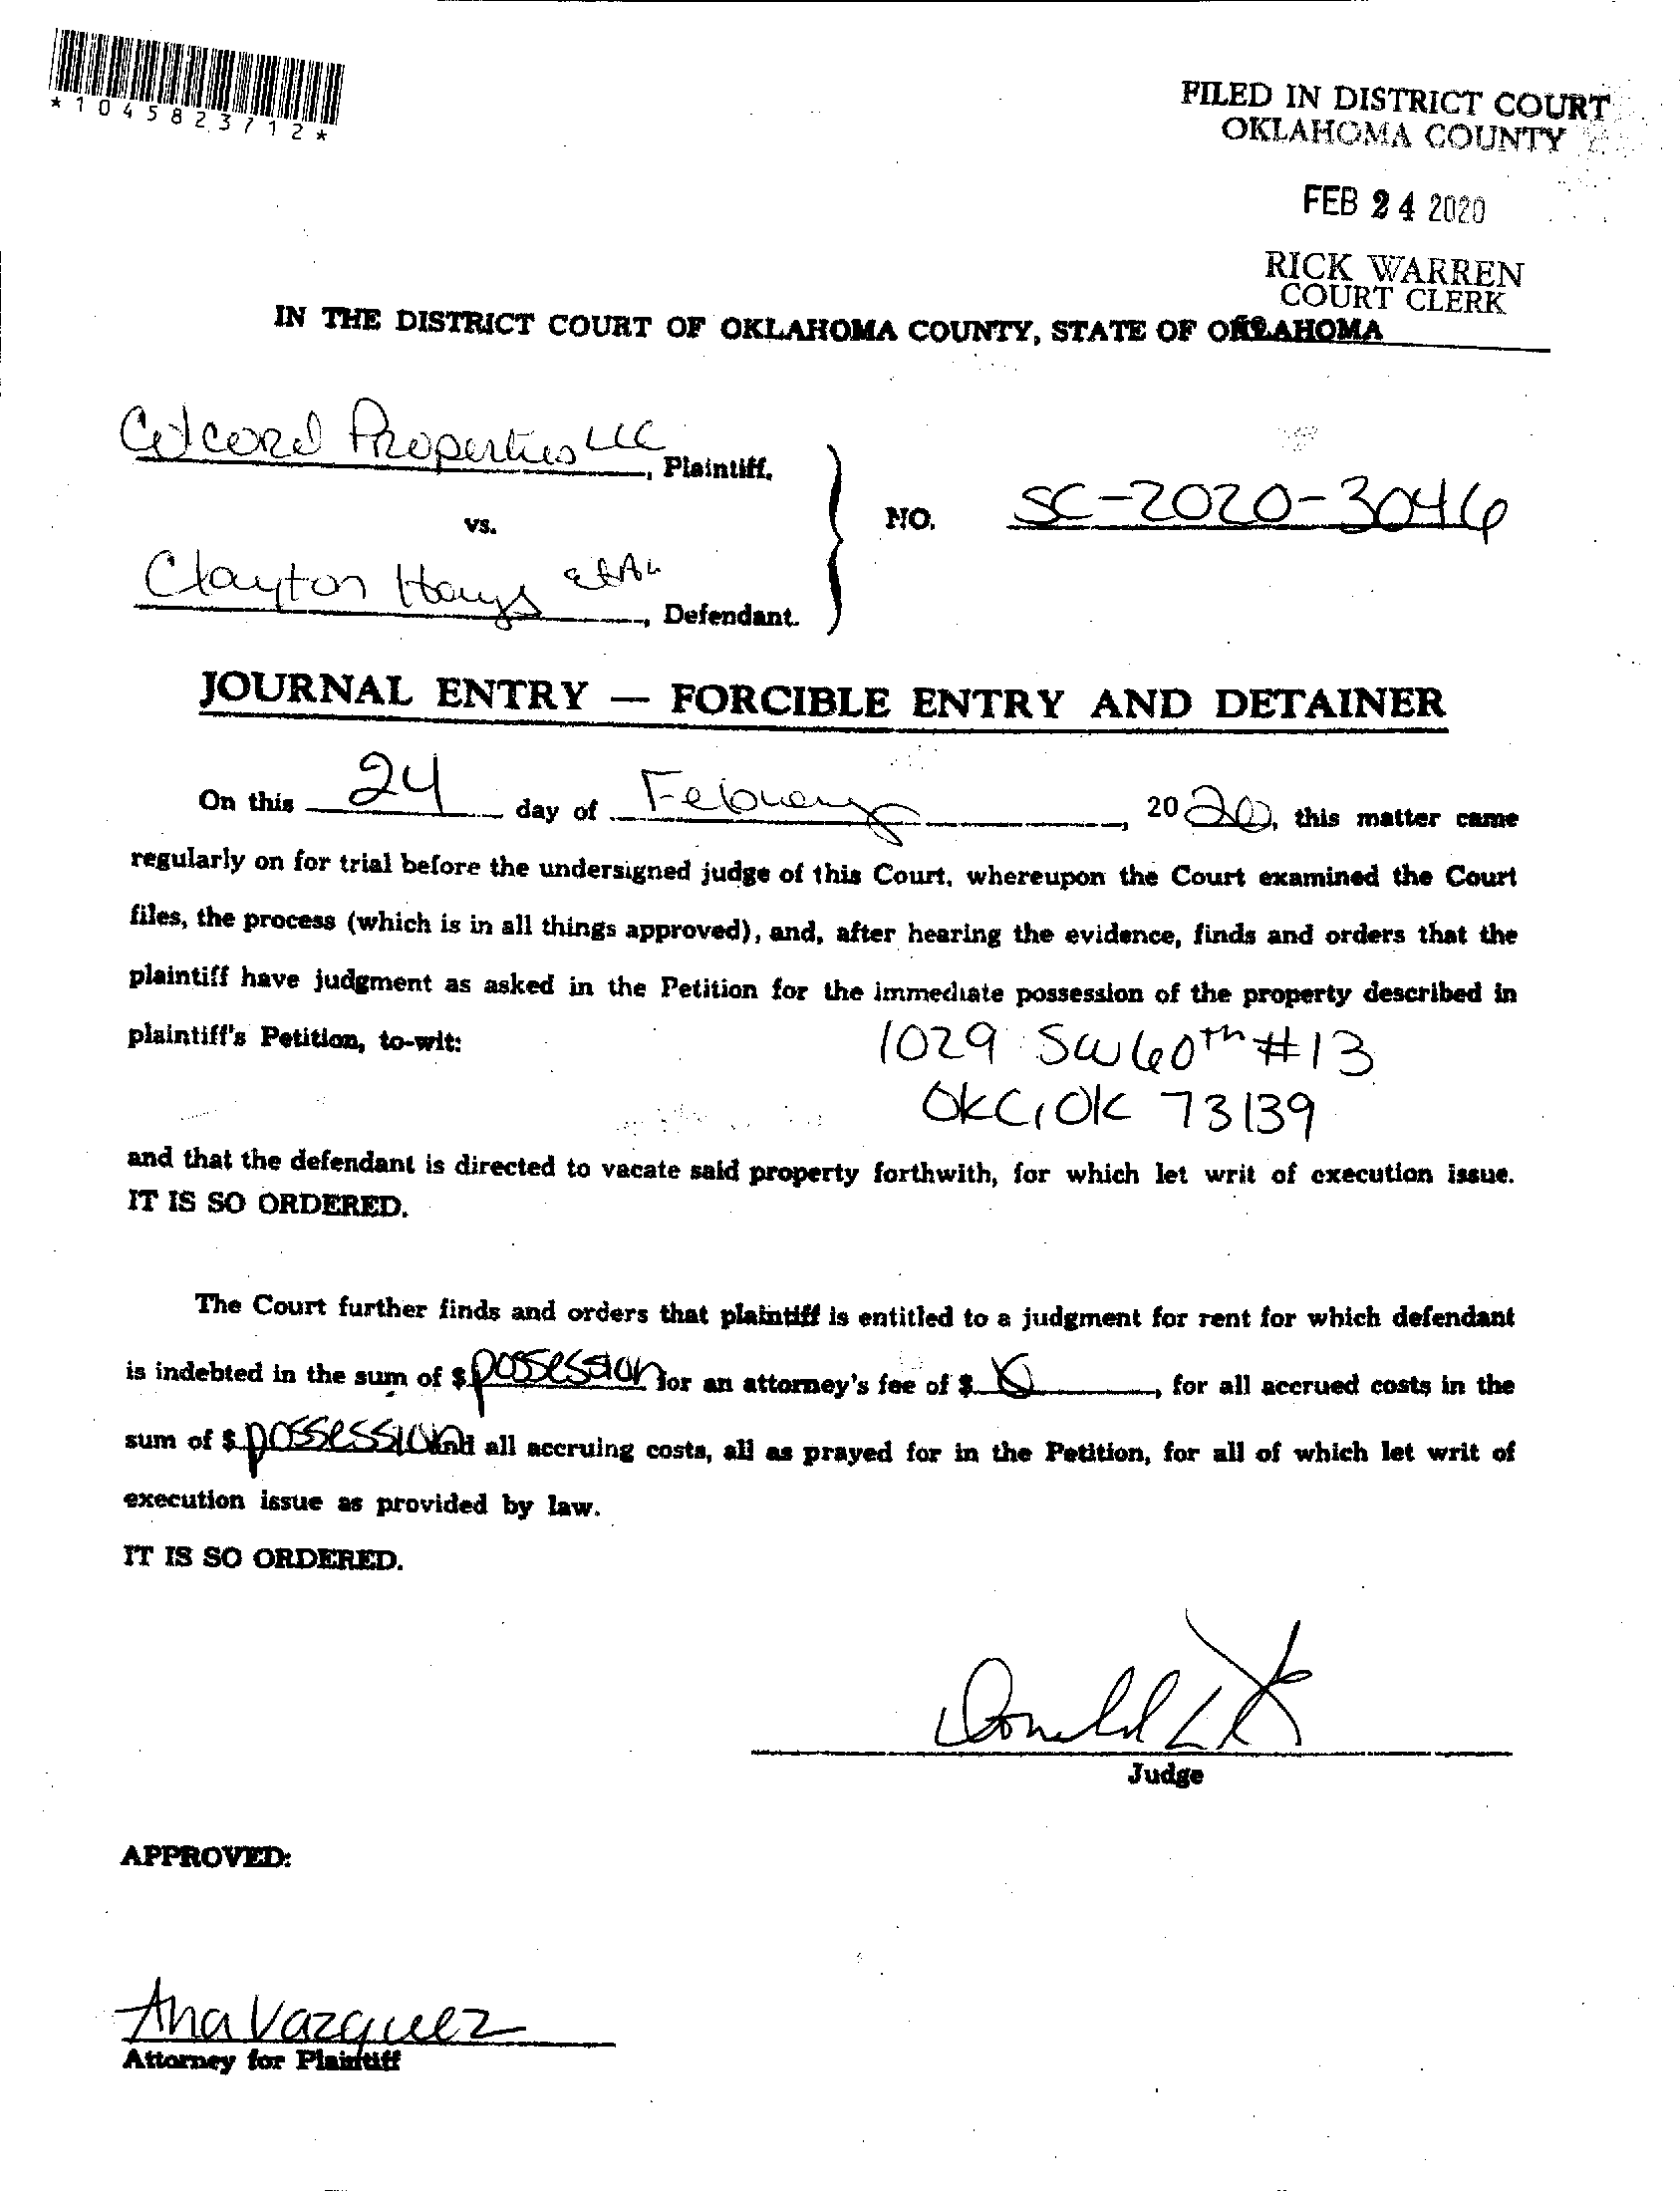 *1045823712*
FILED IN DISTRICT COURT
OKLAHOMA COUNTY
FEB 24 2020
RICK WARREN
COURT CLERK
IN THE DISTRICT COURT OF OKLAHOMA COUNTY, STATE OF OKLAHOMA
Properties LLC, Plaintiff,
vs.
NO. SC-2020-3046
Clayton Hays et AL, Defendant.
JOURNAL ENTRY — FORCIBLE ENTRY AND DETAINER
On this 24 day of February, 2020, this matter came
regularly on for trial before the undersigned judge of this Court, whereupon the Court examined the Court
files, the process (which is in all things approved), and, after hearing the evidence, finds and orders that the
plaintiff have judgment as asked in the Petition for the immediate possession of the property described in
plaintiff's Petition, to-wit: 1029 SW 60th #13
OKC, OK 73139
and that the defendant is directed to vacate said property forthwith, for which let writ of execution issue.
IT IS SO ORDERED.
The Court further finds and orders that plaintiff is entitled to a judgment for rent for which defendant
is indebted in the sum of $ possession for an attorney's fee of $ , for all accrued costs in the
sum of $ possession and all accruing costs, all as prayed for in the Petition, for all of which let writ of
execution issue as provided by law.
IT IS SO ORDERED.
Donald L
Judge
APPROVED:
Ana Vazquez
Attorney for Plaintiff